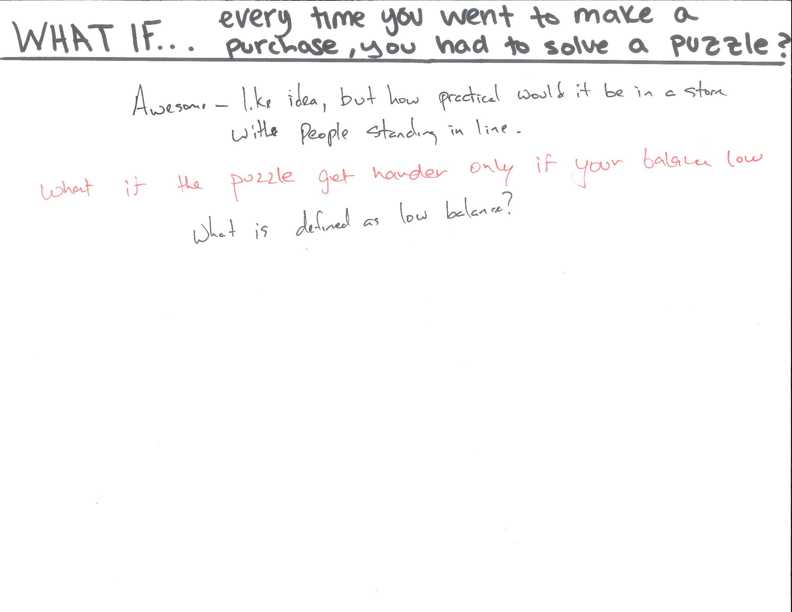 WHAT IF... every time you went to make a
purchase, you had to solve a puzzle?
Awesome - like idea, but how practical would it be in a store
with people standing in line.
What if the puzzle get harder only if your balance low
What is defined as low balance?